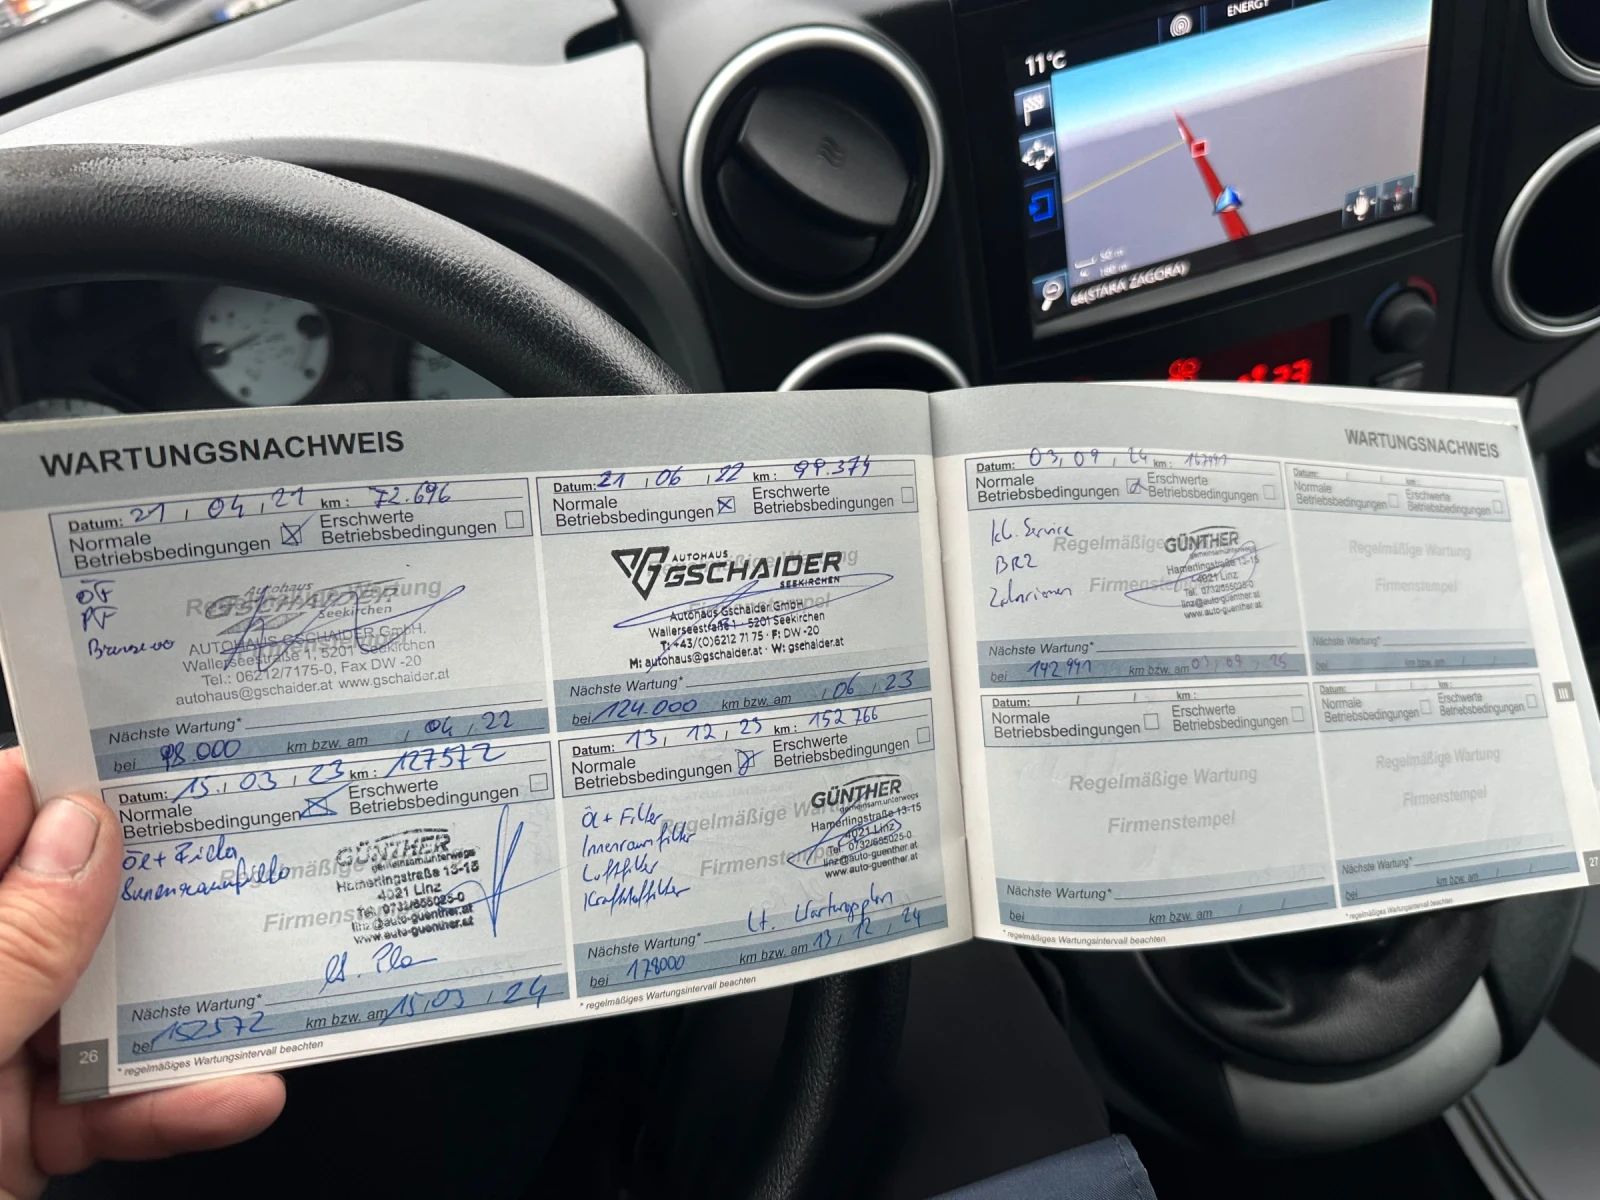 ENERGY
11°C
(STARA ZAGORA)
WARTUNGSNACHWEIS
Datum: 21, 04, 21 km: 72.696
Normale Betriebsbedingungen
Erschwerte Betriebsbedingungen
ÖF
PF
Regelmäßige Wartung
Autohaus
GSCHAIDER
Seekirchen
AUTOHAUS GSCHAIDER GmbH.
Wallerseestraße 1, 5201 Seekirchen
Tel.: 06212/7175-0, Fax DW -20
autohaus@gschaider.at www.gschaider.at
Nächste Wartung*
bei 98.000 km bzw. am , 04, 22
Datum: 21, 06, 22 km: 99.374
Normale Betriebsbedingungen
Erschwerte Betriebsbedingungen
AUTOHAUS
GSCHAIDER
SEEKIRCHEN
Firmenstempel
Autohaus Gschaider GmbH
Wallerseestraße 1 · 5201 Seekirchen
T: +43/(0)6212 71 75 · F: DW -20
M: autohaus@gschaider.at · W: gschaider.at
Nächste Wartung*
bei 124.000 km bzw. am , 06, 23
Datum: 15, 03, 23 km: 127572
Normale Betriebsbedingungen
Erschwerte Betriebsbedingungen
Öl + Filter
Innenraumfilter
GÜNTHER
gemeinsam unterwegs
Hamerlingstraße 13-15
4021 Linz
Tel. 0732/655025-0
linz@auto-guenther.at
www.auto-guenther.at
Nächste Wartung*
bei 152572 km bzw. am 15, 03, 24
*regelmäßiges Wartungsintervall beachten
26
Datum: 13, 12, 23 km: 152766
Normale Betriebsbedingungen
Erschwerte Betriebsbedingungen
Öl + Filter
Innenraumfilter
Luftfilter
Kraftstoffilter
Regelmäßige Wartung
Firmenstempel
GÜNTHER
gemeinsam unterwegs
Hamerlingstraße 13-15
4021 Linz
Tel. 0732/655025-0
linz@auto-guenther.at
www.auto-guenther.at
Lt. Wartungsplan
Nächste Wartung*
bei 178000 km bzw. am 13, 12, 24
* regelmäßiges Wartungsintervall beachten
WARTUNGSNACHWEIS
Datum: 03, 09, 24 km:
Normale Betriebsbedingungen
Erschwerte Betriebsbedingungen
Service
Regelmäßige
GÜNTHER
gemeinsam unterwegs
Hamerlingstraße 13-15
4021 Linz
Tel. 0732/655025-0
linz@auto-guenther.at
www.auto-guenther.at
Nächste Wartung*
bei km bzw. am 03, 09, 25
Datum: / / km:
Normale Betriebsbedingungen
Erschwerte Betriebsbedingungen
Regelmäßige Wartung
Firmenstempel
Nächste Wartung*
bei km bzw. am / /
Datum: / / km:
Normale Betriebsbedingungen
Erschwerte Betriebsbedingungen
Regelmäßige Wartung
Firmenstempel
Nächste Wartung*
bei km bzw. am / /
* regelmäßiges Wartungsintervall beachten
Datum: / / km:
Normale Betriebsbedingungen
Erschwerte Betriebsbedingungen
Regelmäßige Wartung
Firmenstempel
Nächste Wartung*
bei km bzw. am / /
* regelmäßiges Wartungsintervall beachten
III
27